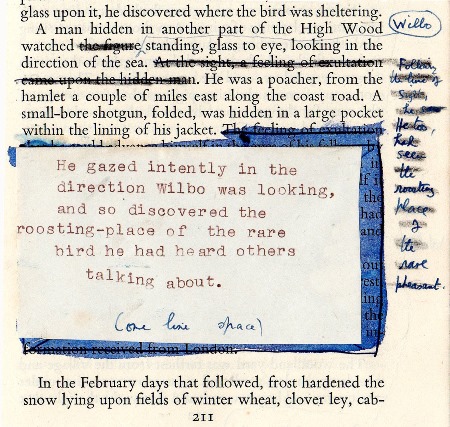 glass upon it, he discovered where the bird was sheltering.
A man hidden in another part of the High Wood
Wilbo
watched the figure standing, glass to eye, looking in the
direction of the sea. At the sight, a feeling of exultation
came upon the hidden man. He was a poacher, from the
hamlet a couple of miles east along the coast road. A
small-bore shotgun, folded, was hidden in a large pocket
within the lining of his jacket. The feeling of exultation
He gazed intently in the
direction Wilbo was looking,
and so discovered the
roosting-place of the rare
bird he had heard others
talking about.
(one line space)
formation received from London.
In the February days that followed, frost hardened the
snow lying upon fields of winter wheat, clover ley, cab-
211
Following
the line of
sight, he
the
roosting
place
of
the
rare
pheasant.